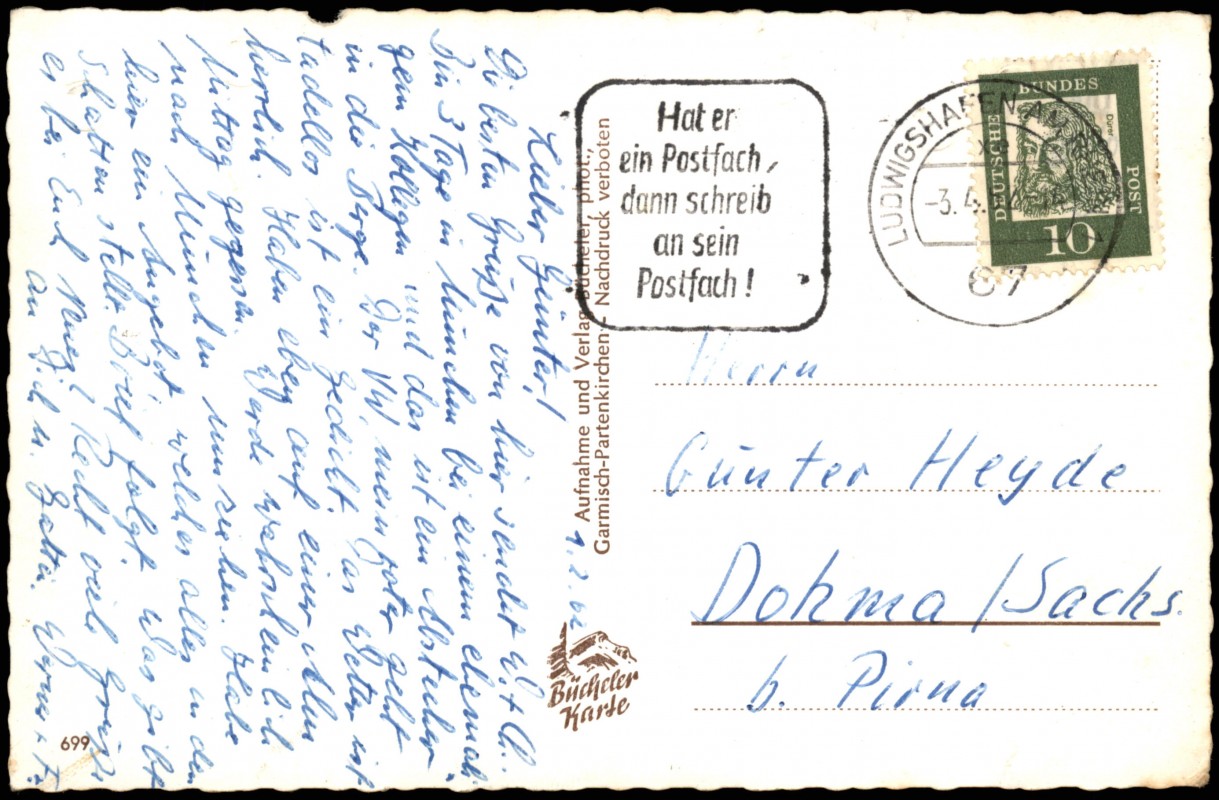 1.2.62
Lieber Günter!
Die besten Grüße von hier sendet W. + A.
Bin 3 Tage in München bei einem ehemali-
gem Kollegen und das ist ein Abstecher
in die Berge. Der VW, mein guter geht
tadellos ist ein Gedicht. Das Wetter ist
herrlich. Haben eben auf einer Alm
Mittag gegessen. Werde wahrscheinlich
nach München umziehen. Habe
hier ein Angebot welches alles in den
Schatten stellt. Brief folgt. Was gibt
es bei Euch Neues? Recht viele Grüße
an Dich u. Gattin. Werner +
699
Aufnahme und Verlag Bücheler phot.,
Garmisch-Partenkirchen - Nachdruck verboten
Bücheler
Karte
Hat er
ein Postfach,
dann schreib
an sein
Postfach!
LUDWIGSHAFEN AM
-3.4.
67
DEUTSCHE BUNDES POST
Dürer
10
Herrn
Günter Heyde
Dohma /Sachs.
b. Pirna